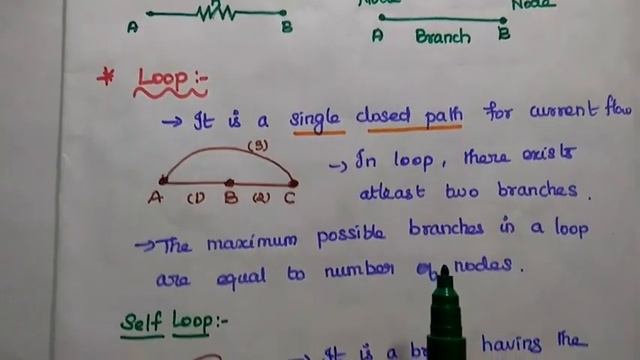 Node
A B
A Branch B
* Loop:-
→ It is a single closed path for current flow
(3)
A (1) B (2) C
→ In loop, there exists
atleast two branches.
→ The maximum possible branches in a loop
are equal to number of nodes.
Self Loop:-
→ It is a having the